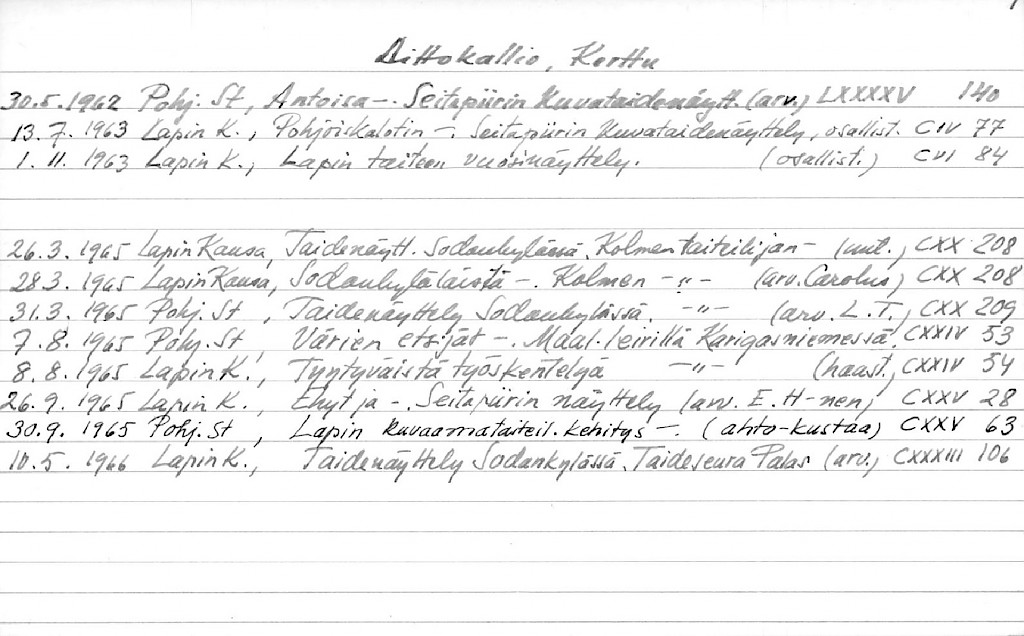 Aittokallio, Kerttu
30.5.1962 Pohj. St, Antoisa –. Seitapiirin Kuvataidenäytt. (arv.) LXXXXV 140
13.7.1963 Lapin K., Pohjoiskalotin –. Seitapiirin kuvataidenäyttely, osallist. CIV 77
1.11.1963 Lapin K., Lapin taiteen vuosinäyttely. (osallist.) CVI 84
26.3.1965 Lapin Kansa, Taidenäytt. Sodankylässä. Kolmen taiteilijan – (uut.) CXX 208
28.3.1965 Lapin Kansa, Sodankyläläistä –. Kolmen –"– (arv. Carolus) CXX 208
31.3.1965 Pohj. St, Taidenäyttely Sodankylässä. –"– (arv. L.T.) CXX 209
7.8.1965 Pohj. St, Värien etsijät –. Maal. leirillä Karigasniemessä. CXXIV 53
8.8.1965 Lapin K., Tyytyväistä työskentelyä –"– (haast.) CXXIV 54
26.9.1965 Lapin K., Ehyt ja –. Seitapiirin näyttely (arv. E. H-nen) CXXV 28
30.9.1965 Pohj. St, Lapin kuvaamataiteil. kehitys –. (ahto-kustaa) CXXV 63
10.5.1966 Lapin K., Taidenäyttely Sodankylässä. Taideseura Palas (arv.) CXXXIII 106